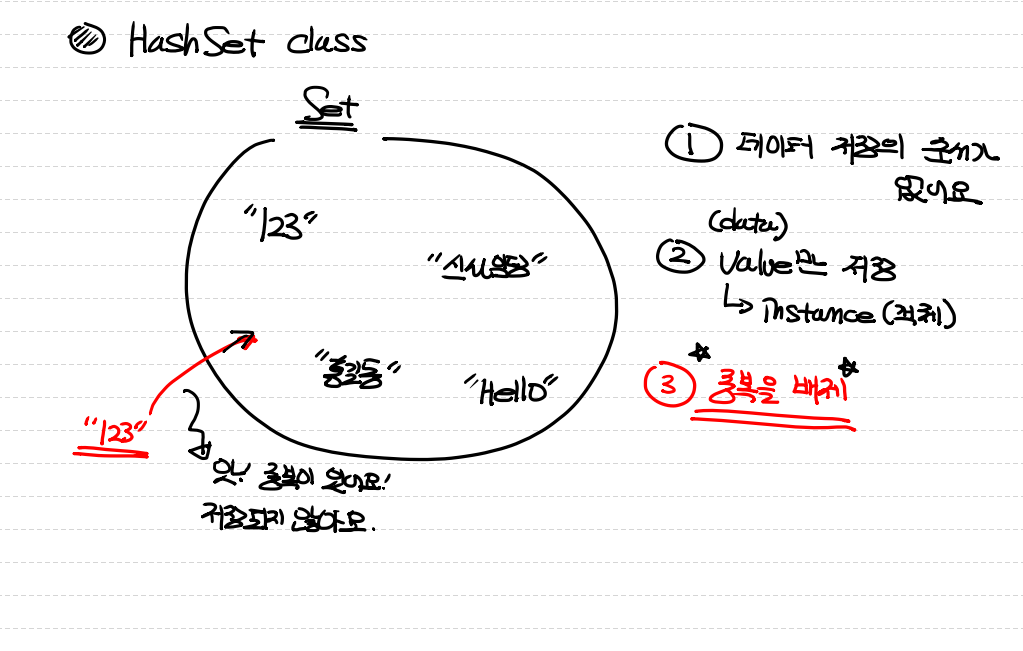 HashSet class
Set
"123"
"신사임당"
"홍길동"
"Hello"
"123"
앗! 중복이 있어요!
저장되지 않아요.
① 데이터 저장의 순서가
없어요
(data)
② Value만 저장
↳ Instance (객체)
③ ☆중복을 배제☆